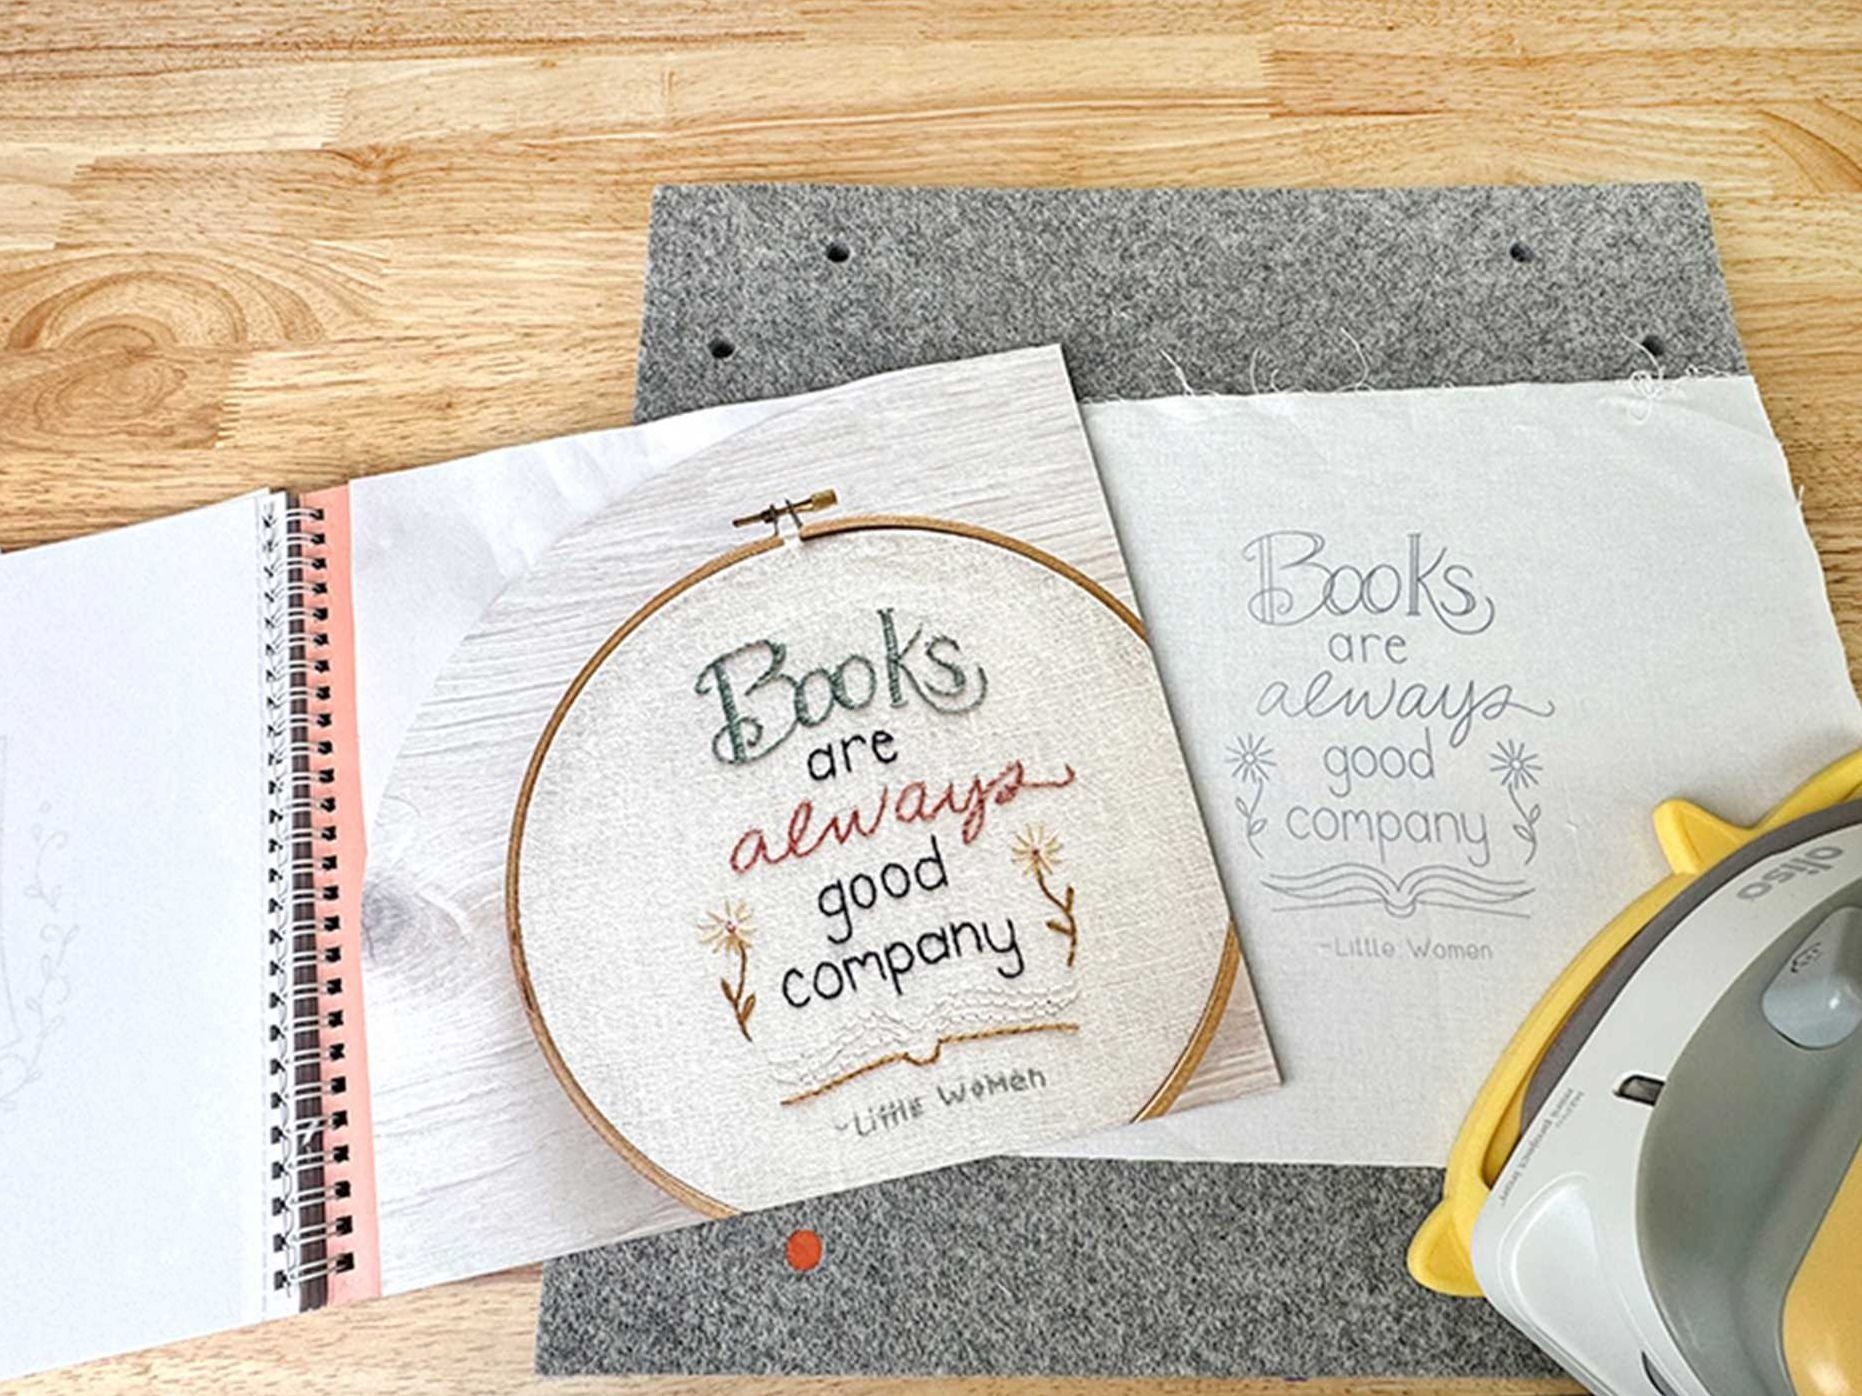 Books
are
always
good
company
~Little Women
Books
are
always
good
company
~Little Women
oliso